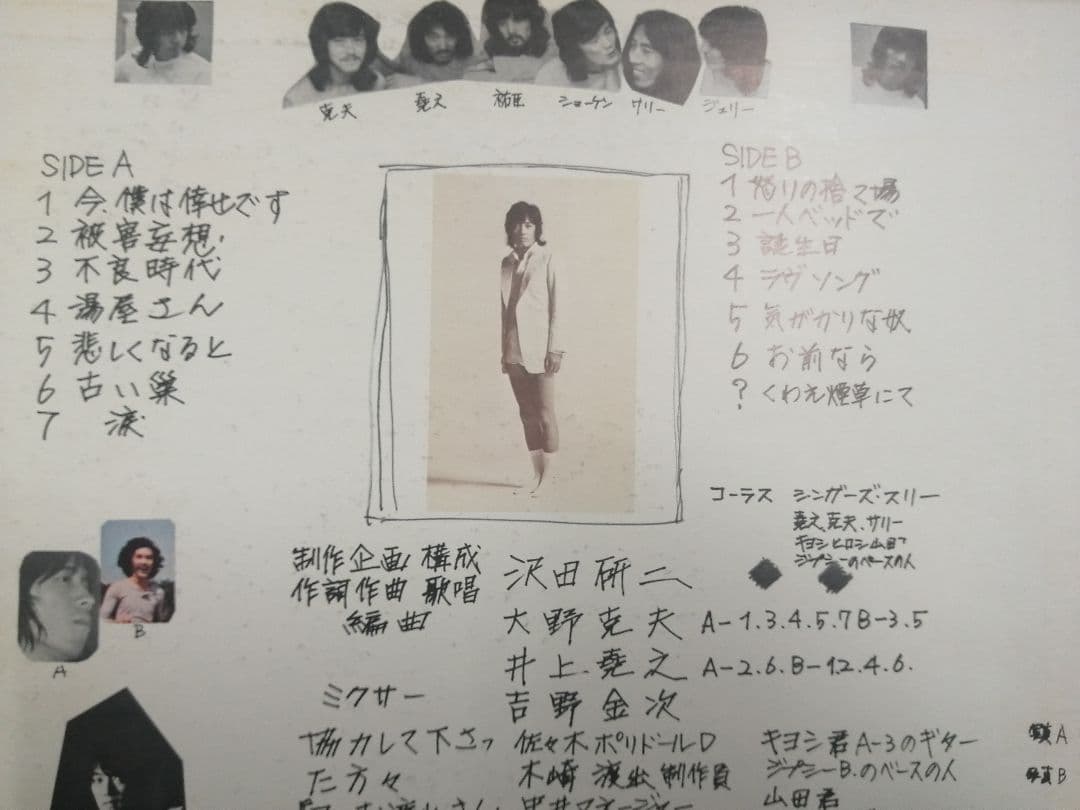 克夫 堯之 祐臣 ショーケン サリー ジュリー
SIDE A
1 今、僕は倖せです
2 被害妄想
3 不良時代
4 湯屋さん
5 悲しくなると
6 古い巣
7 涙
SIDE B
1 怒りの捨て場
2 一人ベッドで
3 誕生日
4 ラヴソング
5 気がかりな奴
6 お前なら
? くわえ煙草にて
コーラス シンガーズ・スリー
堯之、克夫、サリー
キヨシヒロシ山田
ジプシーのベースの人
制作企画構成
作詞作曲 歌唱 沢田研二
編曲 大野克夫 A-1.3.4.5.7 B-3.5
井上堯之 A-2.6.B-1.2.4.6.
ミクサー 吉野金次
協力して下さっ 佐々木ポリドールD キヨシ君A-3のギター
た方々 木崎 演出 制作員 ジプシーB.のベースの人
中井マネージャー 山田君
A
B
写真A
写真B